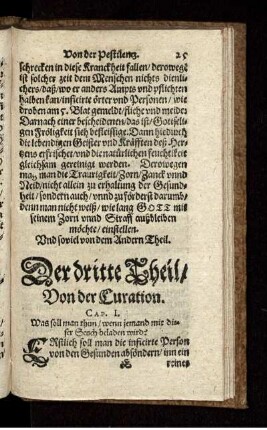 Von der Pestilentz. 25
schrecken in diese Kranckheit fallen/derowegē
ist solcher zeit dem Menschen nichts dienli-
chers/daß/wo er anders Ampts vnd pflichten
halben kan/inficirte örter vnd Personen/wie
droben am 5. Blat gemeldt/fliehe vnd meide:
Darnach einer bescheidenen/das ist/Gottseli-
gen Frölichkeit sich befleissige. Dann hiedurch
die lebendigen Geister vnd Kräfften deß Her-
tzens erfrischet/vnd die natürlichen feuchtikeit
gleichsam gereinigt werden. Derowegen
mag man die Traurigkeit/Zorn/Zanck vnnd
Neid/nicht allein zu erhaltung der Gesund-
heit/sondern auch/vnnd zuförderst darumb/
dann man nicht weiß/wie lang GOTT mit
seinem Zorn vnnd Straff aussbleiben
möchte/einstellen.
Vnd soviel von dem Andern Theil.
Der dritte Theil/
Von der Curation.
CAP. I.
Was soll man thun/wenn jemand mit die-
ser Seuch beladen wird?
ERstlich soll man die inficirte Person
von den Gesunden absöndern/inn ein
reines